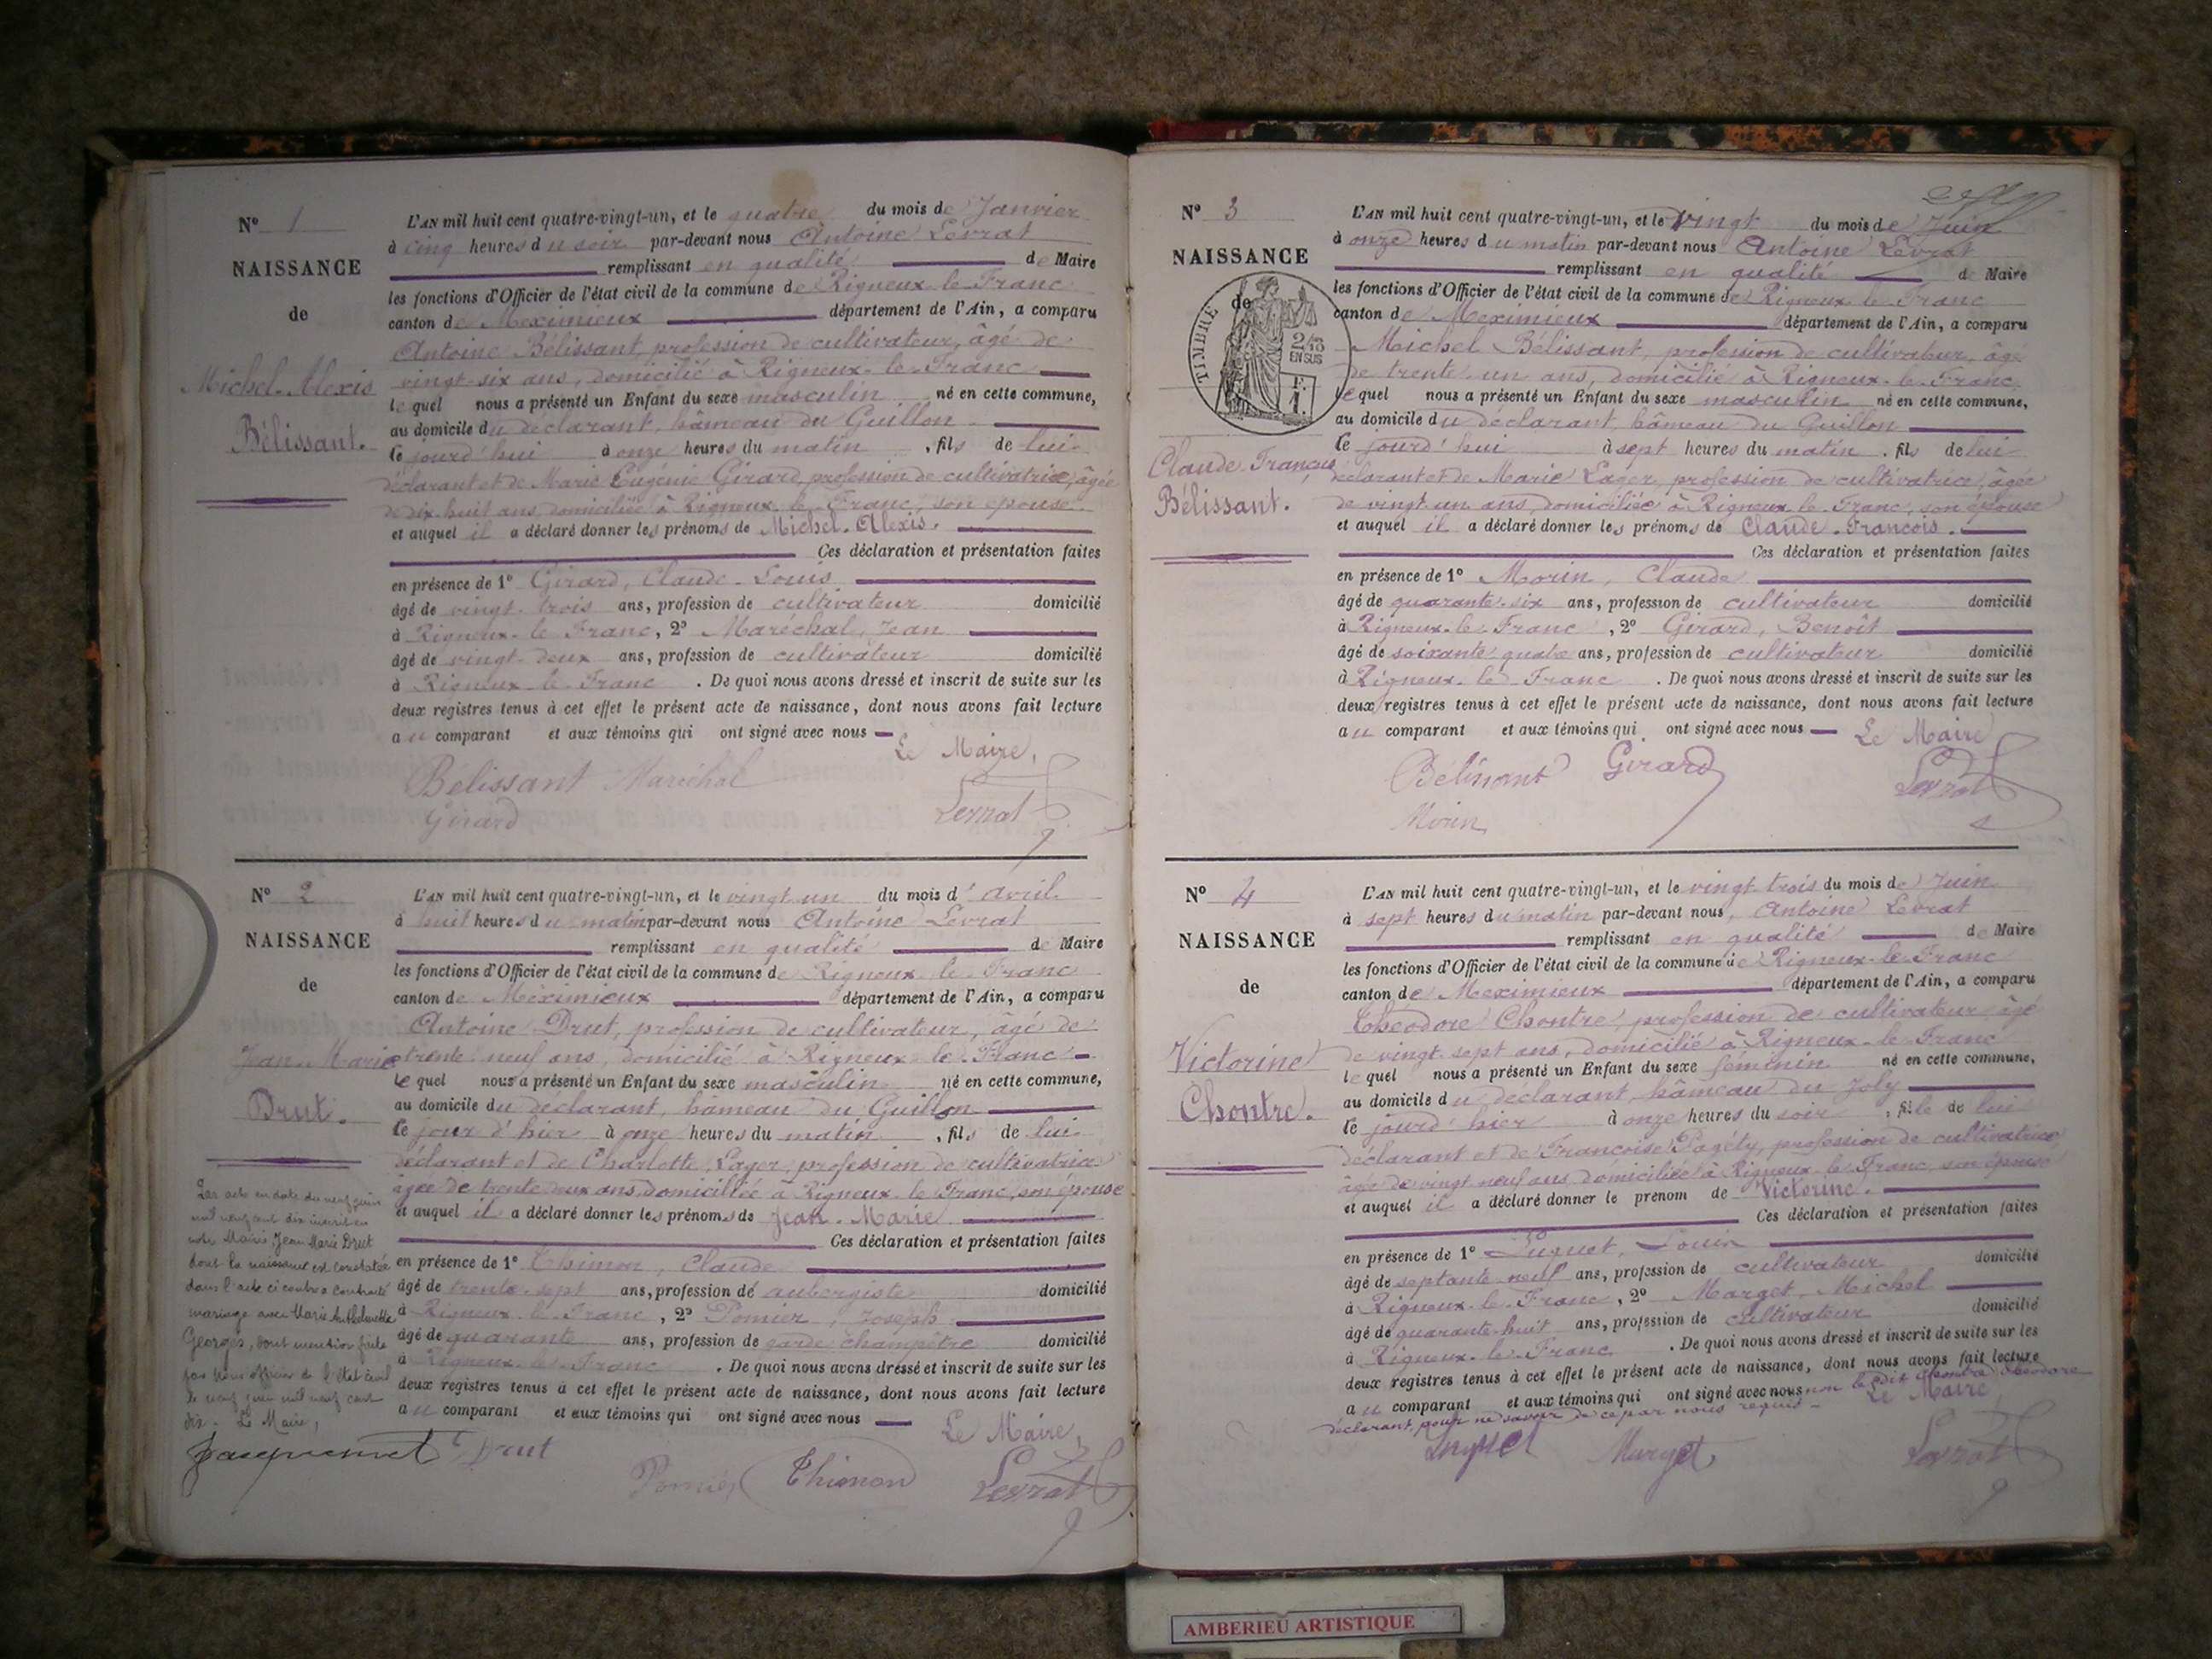 N° 1
NAISSANCE
de
Michel-Alexis
Bélissant.
L'AN mil huit cent quatre-vingt-un, et le quatre du mois de Janvier
à cinq heures du soir par-devant nous Antoine Levrat
remplissant en qualité de Maire
les fonctions d'Officier de l'état civil de la commune de Rigneux-le-Franc
canton de Meximieux département de l'Ain, a comparu
Antoine Bélissant, profession de cultivateur, âgé de
vingt-six ans, domicilié à Rigneux-le-Franc
lequel nous a présenté un Enfant du sexe masculin né en cette commune,
au domicile du déclarant, hâmeau du Guillon
ce jourd'hui à onze heures du matin, fils de lui
déclarant et de Marie Eugénie Girard, profession de cultivatrice, âgée
de dix-huit ans domiciliée à Rigneux-le-Franc, son épouse
et auquel il a déclaré donner les prénoms de Michel-Alexis.
Ces déclaration et présentation faites
en présence de 1° Girard, Claude-Louis
âgé de vingt-trois ans, profession de cultivateur domicilié
à Rigneux-le-Franc, 2° Maréchal, Jean
âgé de vingt-deux ans, profession de cultivateur domicilié
à Rigneux-le-Franc. De quoi nous avons dressé et inscrit de suite sur les
deux registres tenus à cet effet le présent acte de naissance, dont nous avons fait lecture
au comparant et aux témoins qui ont signé avec nous
Le Maire,
Bélissant Maréchal
Girard Levrat
N° 2
NAISSANCE
de
Jean-Marie
Drut.
L'AN mil huit cent quatre-vingt-un, et le vingt un du mois d'avril
à huit heures du matin par-devant nous Antoine Levrat
remplissant en qualité de Maire
les fonctions d'Officier de l'état civil de la commune de Rigneux-le-Franc
canton de Méximieux département de l'Ain, a comparu
Antoine Drut, profession de cultivateur, âgé de
trente-neuf ans, domicilié à Rigneux-le-Franc
lequel nous a présenté un Enfant du sexe masculin né en cette commune,
au domicile du déclarant, hâmeau du Guillon
le jour d'hier à onze heures du matin, fils de lui
déclarant et de Charlotte Layer, profession de cultivatrice
âgée de trente deux ans, domiciliée à Rigneux-le-Franc, son épouse
et auquel il a déclaré donner les prénoms de Jean-Marie
Ces déclaration et présentation faites
en présence de 1° Thimon, Claude
âgé de trente-sept ans, profession de aubergiste domicilié
à Rigneux-le-Franc, 2° Pomier, Joseph
âgé de quarante ans, profession de garde champêtre domicilié
à Rigneux-le-Franc. De quoi nous avons dressé et inscrit de suite sur les
deux registres tenus à cet effet le présent acte de naissance, dont nous avons fait lecture
au comparant et aux témoins qui ont signé avec nous
Le Maire,
Drut
Pomier Thimon Levrat
Par acte en date du neuf juin
mil neuf cent dix inscrit en
notre Mairie Jean Marie Drut
dont la naissance est constatée
dans l'acte ci contre a contracté
mariage avec Marie
Georges, dont mention faite
par Nous officier de l'état civil
le neuf juin mil neuf cent
dix. Le Maire,
Jacquemet
N° 3
NAISSANCE
de
TIMBRE
EN SUS
Claude François
Bélissant.
L'AN mil huit cent quatre-vingt-un, et le vingt du mois de Juin
à onze heures du matin par-devant nous Antoine Levrat
remplissant en qualité de Maire
les fonctions d'Officier de l'état civil de la commune de Rigneux-le-Franc
canton de Meximieux département de l'Ain, a comparu
Michel Bélissant, profession de cultivateur, âgé
de trente-un ans, domicilié à Rigneux-le-Franc
lequel nous a présenté un Enfant du sexe masculin né en cette commune,
au domicile du déclarant, hâmeau du Guillon
ce jourd'hui à sept heures du matin, fils de lui
déclarant et de Marie Layer, profession de cultivatrice, âgée
de vingt un ans, domiciliée à Rigneux-le-Franc, son épouse
et auquel il a déclaré donner les prénoms de Claude-François.
Ces déclaration et présentation faites
en présence de 1° Morin, Claude
âgé de quarante-six ans, profession de cultivateur domicilié
à Rigneux-le-Franc, 2° Girard, Benoît
âgé de soixante-quatre ans, profession de cultivateur domicilié
à Rigneux-le-Franc. De quoi nous avons dressé et inscrit de suite sur les
deux registres tenus à cet effet le présent acte de naissance, dont nous avons fait lecture
au comparant et aux témoins qui ont signé avec nous
Le Maire
Bélissant Girard Levrat
Morin
N° 4
NAISSANCE
de
Victorine
Chontre.
L'AN mil huit cent quatre-vingt-un, et le vingt-trois du mois de Juin
à sept heures du matin par-devant nous, Antoine Levrat
remplissant en qualité de Maire
les fonctions d'Officier de l'état civil de la commune de Rigneux-le-Franc
canton de Meximieux département de l'Ain, a comparu
Théodore Chontre, profession de cultivateur âgé
de vingt-sept ans, domicilié à Rigneux-le-Franc
lequel nous a présenté un Enfant du sexe féminin né en cette commune,
au domicile du déclarant, hâmeau du Joly
le jourd'hier à onze heures du soir, fille de lui
déclarant et de Françoise Pagéty, profession de cultivatrice
âgée de vingt neuf ans domiciliée à Rigneux-le-Franc, son épouse
et auquel il a déclaré donner le prénom de Victorine.
Ces déclaration et présentation faites
en présence de 1° Luquet, Louis
âgé de septante-neuf ans, profession de cultivateur domicilié
à Rigneux-le-Franc, 2° Marget, Michel
âgé de quarante-huit ans, profession de cultivateur domicilié
à Rigneux-le-Franc. De quoi nous avons dressé et inscrit de suite sur les
deux registres tenus à cet effet le présent acte de naissance, dont nous avons fait lecture
au comparant et aux témoins qui ont signé avec nous non le dit Chontre Théodore
déclarant, pour ne savoir de ce par nous requis
Le Maire
Luquet Marget Levrat
AMBERIEU ARTISTIQUE